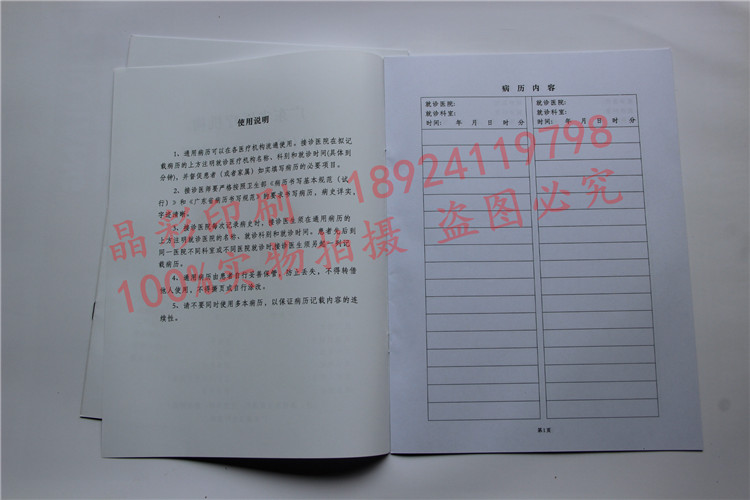 使用说明
1、通用病历可以在各医疗机构流通使用，接诊医院在拟记
载病历的上方注明就诊医疗机构名称、科别和就诊时间(具体到
分钟)，并督促患者（或者家属）如实填写病历的必要项目。
2、接诊医师要严格按照卫生部《病历书写基本规范（试
行）》和《广东省病历书写规范》的要求书写病历，病史详实，
字迹清晰。
3、接诊医院每次记录病史时，接诊医生须在通用病历的
上方注明就诊医院的名称、就诊科别和就诊时间。患者先后到
同一医院不同科室或不同医院就诊时,接诊医生须另起一列记
载病历。
4、通用病历由患者自行妥善保管，防止丢失，不得转借
他人使用，不得撕页或自行涂改。
5、请不要同时使用多本病历，以保证病历记载内容的连
续性。
病 历 内 容
就诊医院:
就诊科室:
时间: 年 月 日 时 分
就诊医院:
就诊科室:
时间: 年 月 日 时 分
第1页
晶彩印刷 18924119798
100%实物拍摄 盗图必究